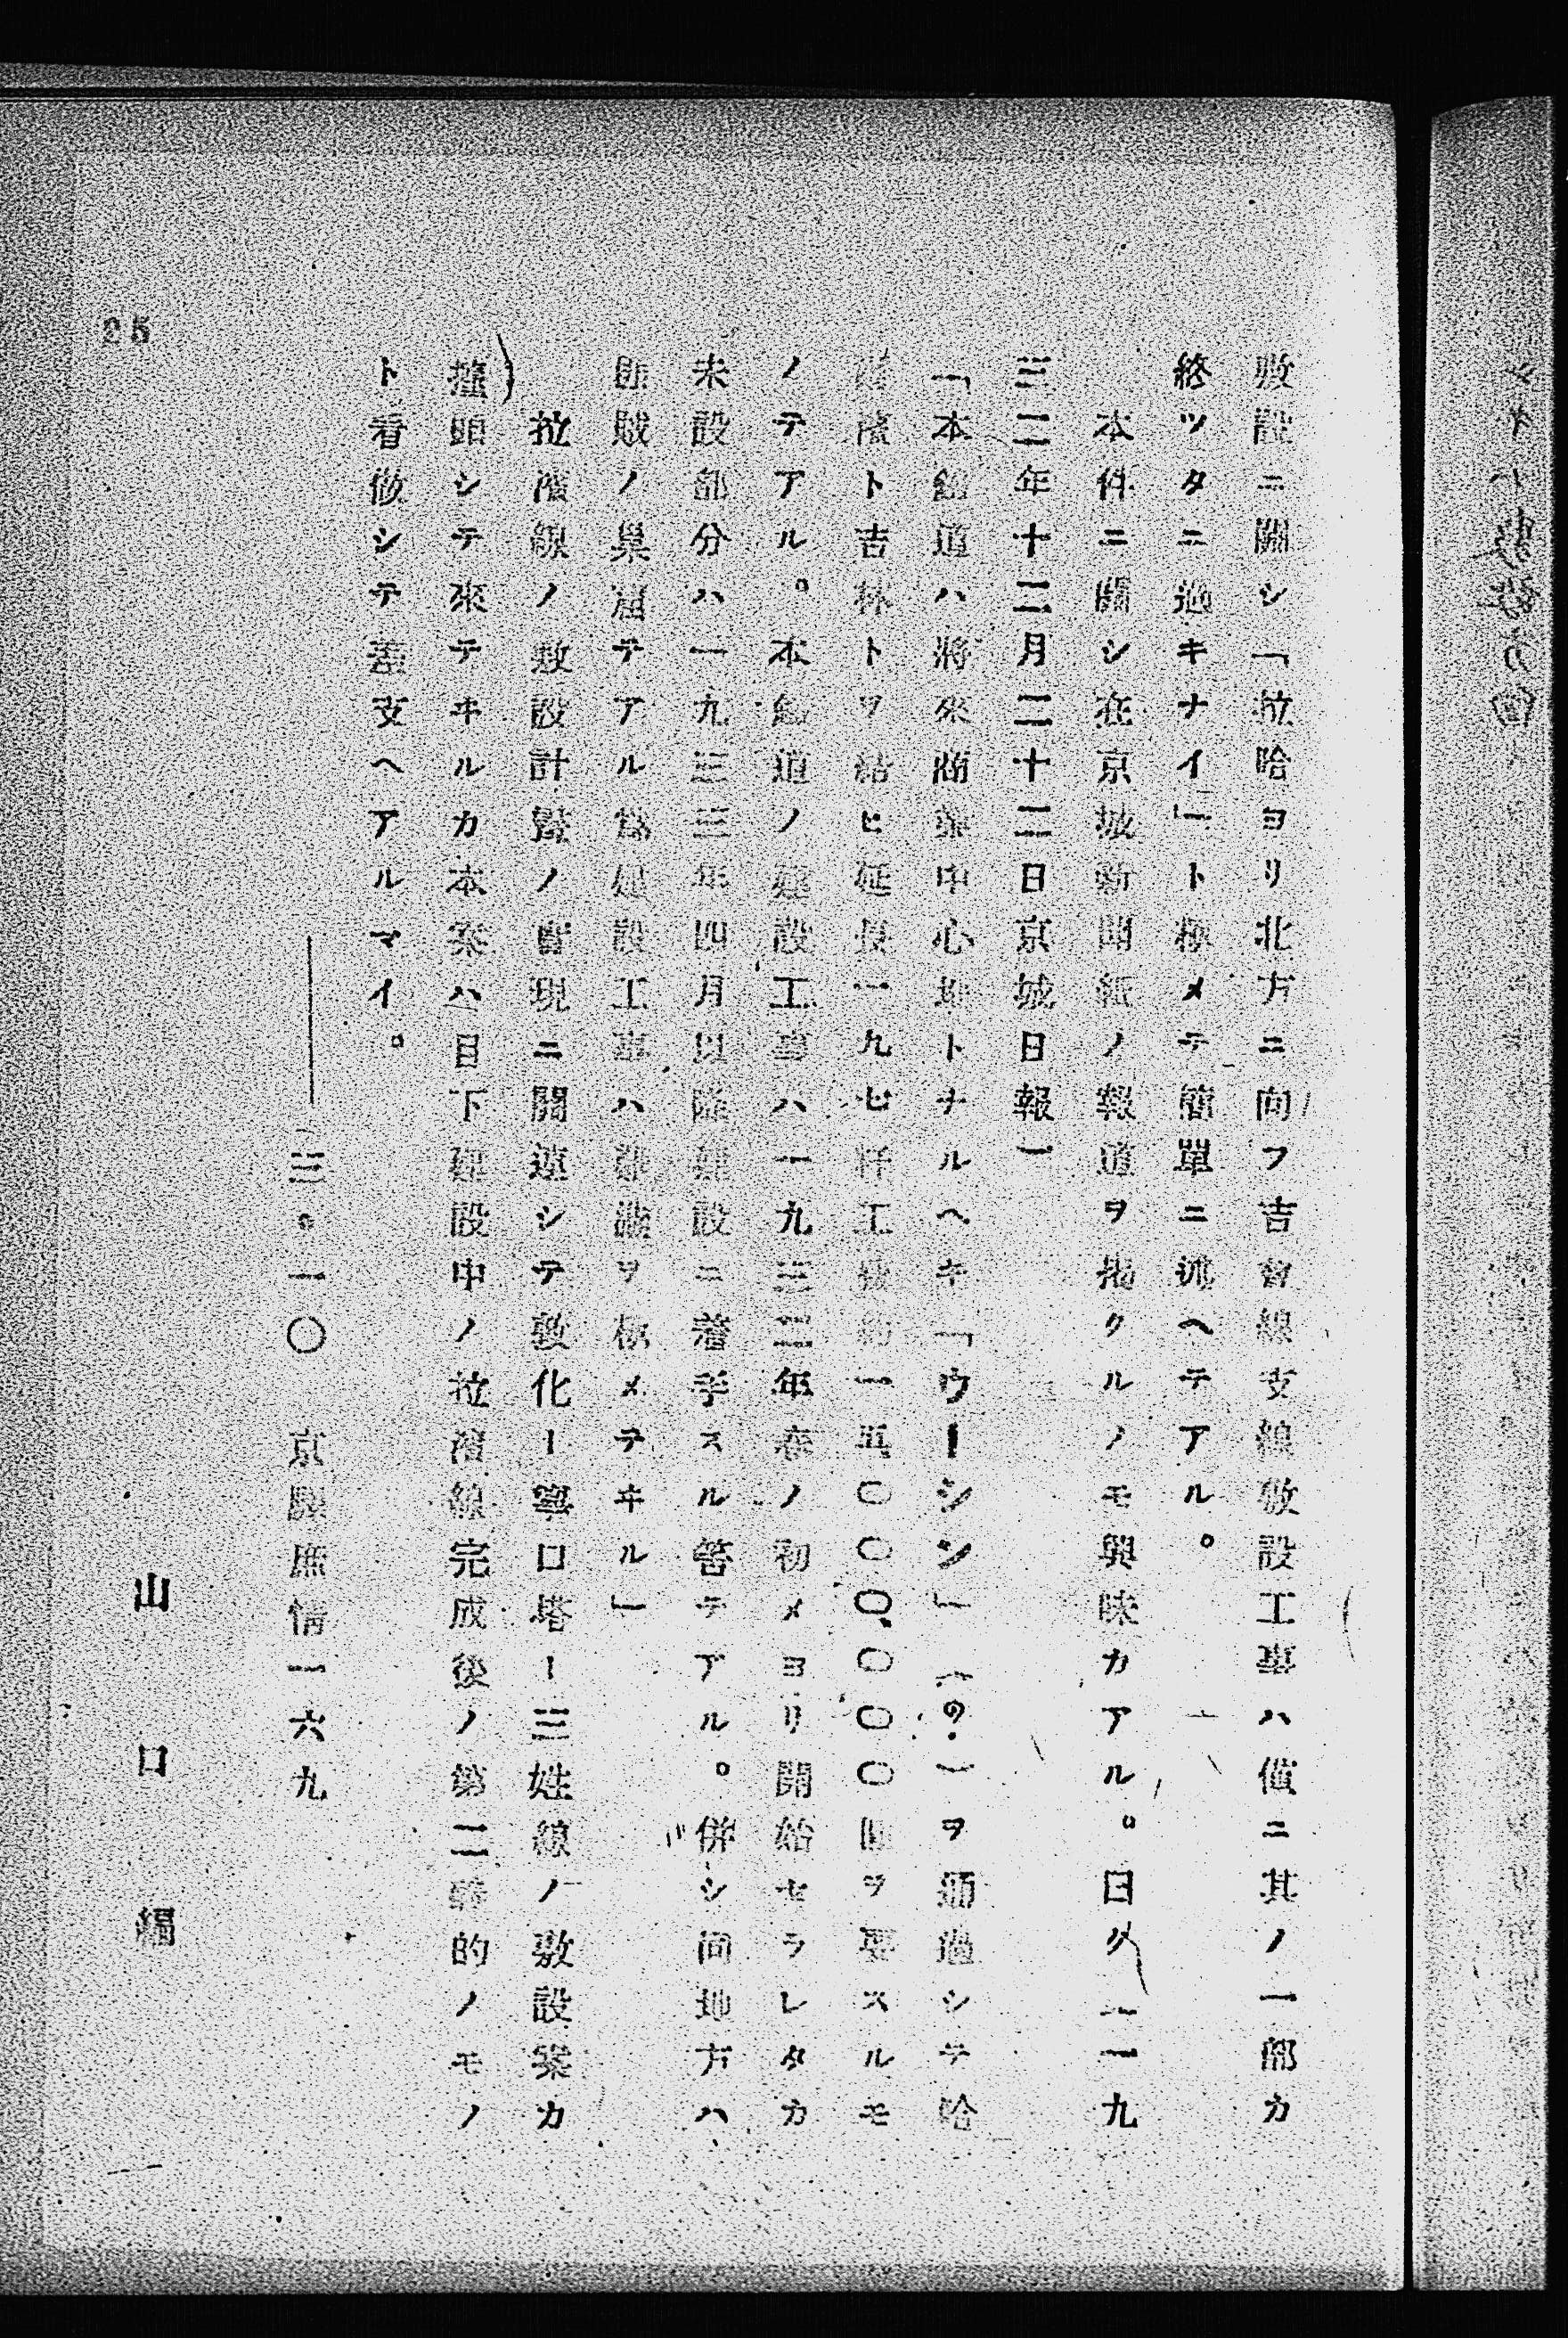 敷設ニ關シ「拉哈ヨリ北方ニ向フ吉會線支線敷設工事ハ僅ニ其ノ一部カ
終ツタニ過キナイ」ト極メテ簡單ニ述ヘテアル。
本件ニ關シ在京城新聞紙ノ報道ヲ揭クルノモ興味カアル。曰ク(一九
三二年十二月二十二日京城日報)
「本鐵道ハ將來商業中心地トナルヘキ「ウーシン」(?)ヲ通過シテ哈
爾濱ト吉林トヲ結ヒ延長一九七粁工費約一五〇〇〇〇〇〇圓ヲ要スルモ
ノテアル。本鐵道ノ建設工事ハ一九三二年春ノ初メヨリ開始セラレタカ
未設部分ハ一九三三年四月以降建設ニ着手スル筈テアル。併シ同地方ハ
匪賊ノ巢窟テアル爲建設工事ハ難澁ヲ極メテヰル」
拉濱線ノ敷設計畫ノ實現ニ關連シテ敦化ー寧口塔ー三姓線ノ敷設案カ
擡頭シテ來テヰルカ本案ハ目下建設中ノ拉濱線完成後ノ第二豫的ノモノ
ト看做シテ差支ヘアルマイ。
三。一〇 京關庶情一六九
山口編
25